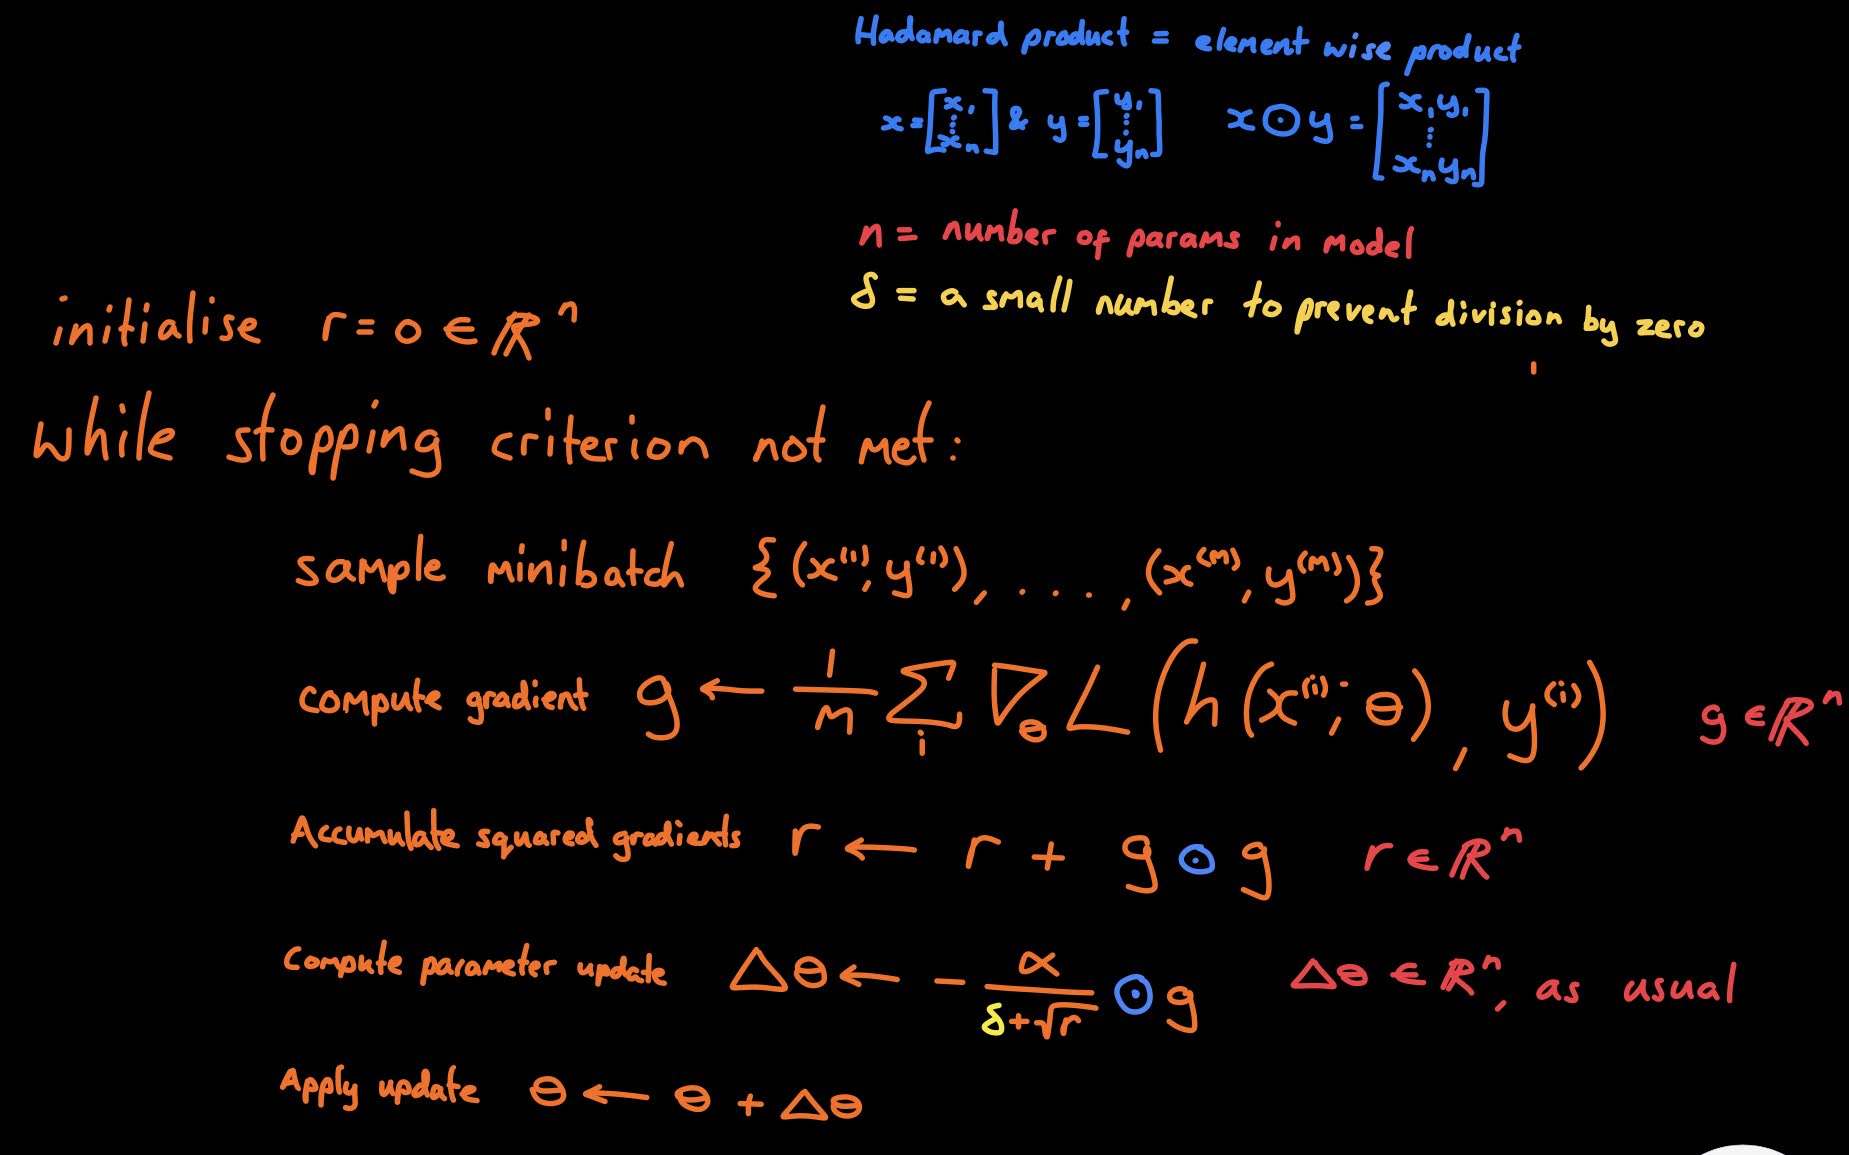 Hadamard product = element wise product
x = [x₁ ⋮ xₙ] & y = [y₁ ⋮ yₙ] x ⊙ y = [x₁y₁ ⋮ xₙyₙ]
n = number of params in model
δ = a small number to prevent division by zero
initialise r = 0 ∈ ℝⁿ
while stopping criterion not met:
sample minibatch {(x⁽¹⁾, y⁽¹⁾), . . . . , (x⁽ᵐ⁾, y⁽ᵐ⁾)}
compute gradient g ← 1/m Σᵢ ∇_θ L(h(x⁽ⁱ⁾; θ), y⁽ⁱ⁾) g ∈ ℝⁿ
Accumulate squared gradients r ← r + g ⊙ g r ∈ ℝⁿ
Compute parameter update Δθ ← - α/(δ+√r) ⊙ g Δθ ∈ ℝⁿ, as usual
Apply update θ ← θ + Δθ